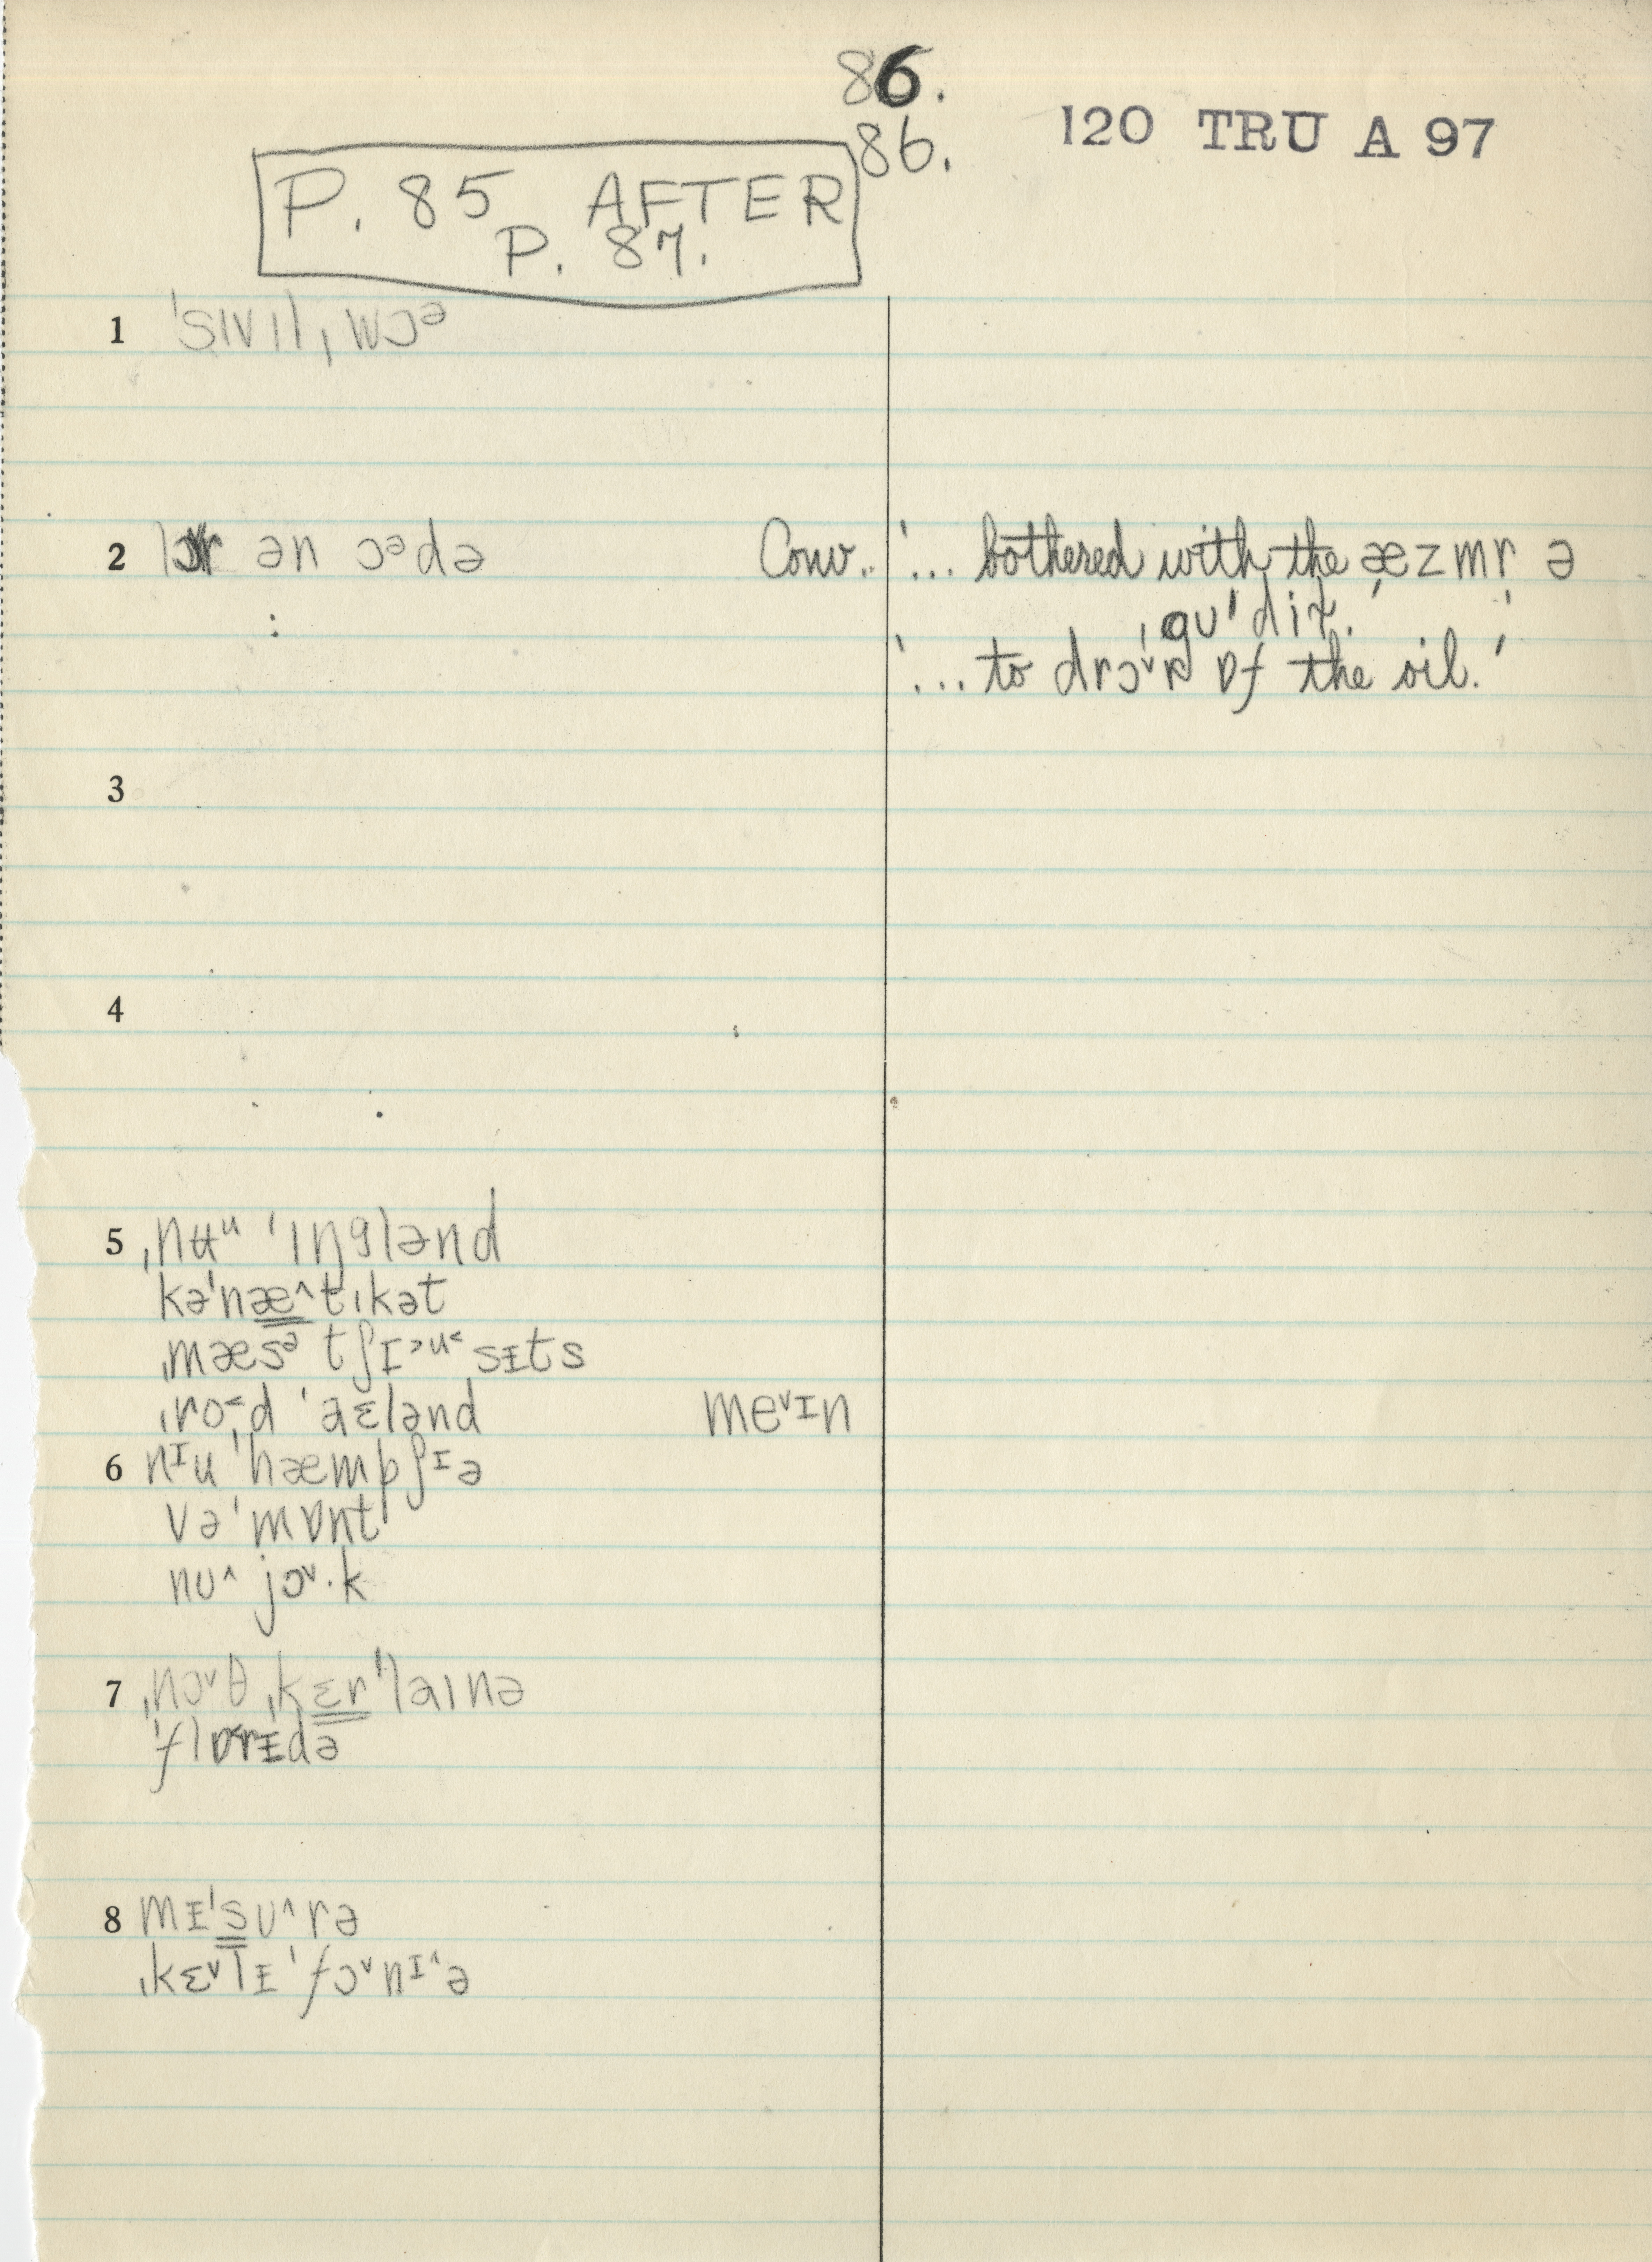 86.
86.
120 TRU A 97
P. 85 AFTER
P. 87.
1 ˈsɪvɪlˌwɔᵊ
2 lɔr ən ɔᵊdə
Conv.. '... bothered with the æzmr ə
ˌgʊˈdiɫ.'
'... to drɔˈᵛr ɒf the oil.'
3
4
5 ˌnʉᵘ ˈɪŋglənd
kəˈnæ^tɪkət
ˌmæsᵊ tʃɪ˃ᵘ˂ sɪts
ˌro˂d ˈaɛlənd meᵛɪn
6 nᶦu ˈhæmpʃᶦə
vəˈmɒnt
nʊ^ jɔᵛ·k
7 ˌnɔᵛθ ˌkɛrˈlaɪnə
ˈflɒrɪdə
8 mɪˈsʊ^rə
ˌkɛᵛlɪˈfɔᵛnɪ^ə